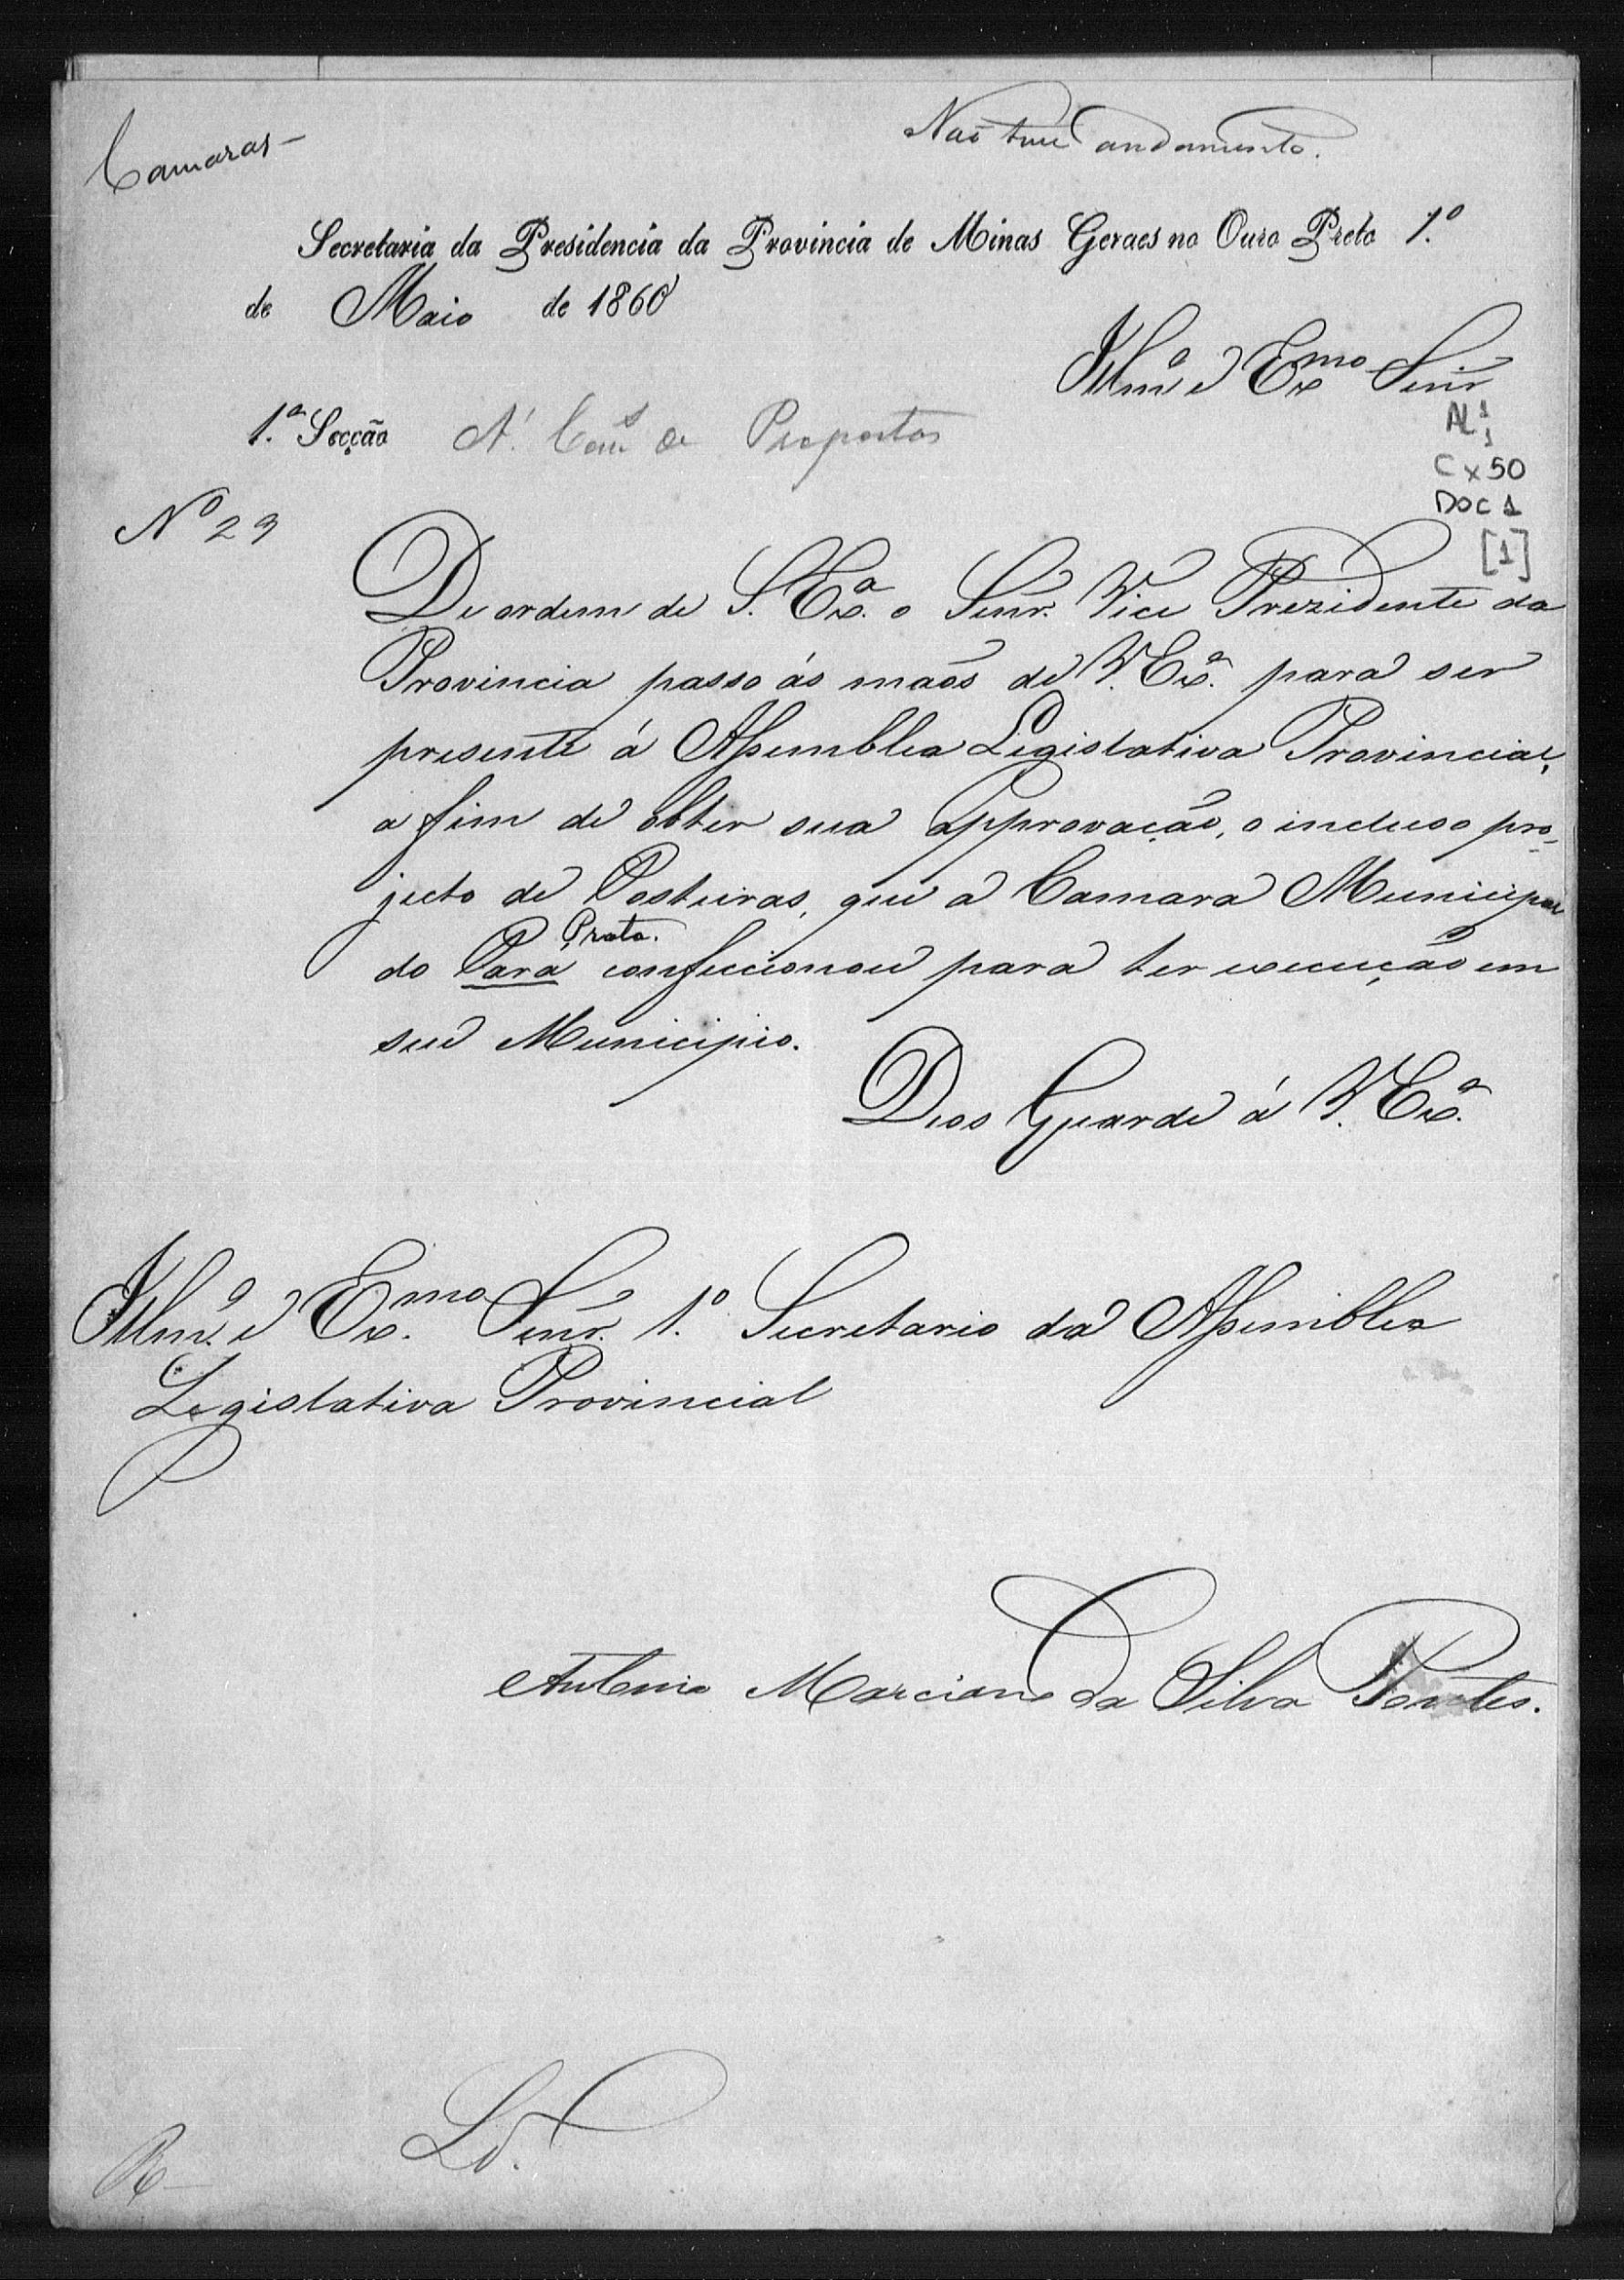 Camaras -
Não teve andamento.
Secretaria da Presidencia da Provincia de Minas Geraes no Ouro Preto 1.º
de Maio de 1860
Illmº e Exmo Senr
1.ª Secção A' Comm de Propostas
AL 1
1
Cx 50
DOC 1
[1]
Nº 23
De ordem de S. Exª. o Senr. Vice Prezidente da
Provincia passo ás maõs de V. Exª. para ser
presente á Assemblea Legislativa Provincial,
a fim de obter sua approvação, o incluso pro-
jecto de Posturas, que a Camara Municipal
Prata.
do Pará confeccionou para ter execução em
seu Municipio.
Deos Guarde á V. Exª.
Illmº. e Exmo. Senr. 1.º Secretario da Assemblea
Legislativa Provincial
Antonio Marciano da Silva Pontes.